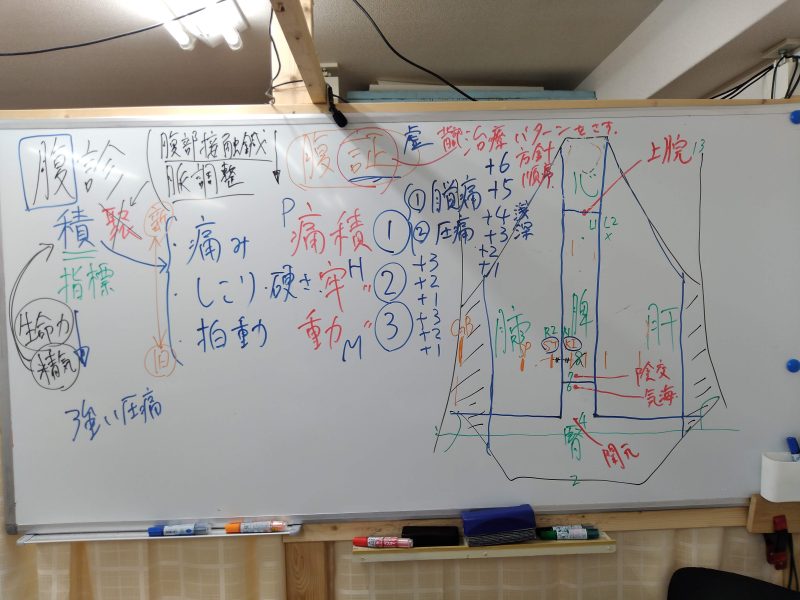 腹診
腹部接触鍼
脈調整
腹証
虚
治療パターンをさす。
方針
順序
積 聚
指標
生命力
精気
強い圧痛
新
旧
・痛み
・しこり・硬さ
・拍動
P 痛積 ①
H 牢〃 ②
M 動〃 ③
① 自発痛
② 圧痛
+6
+5
+4
+3
+2
+1
+3
+2
+1
+3
+2
+1
深
心
上脘 13
L2
脾
肺
肝
GB
陰交
気海
7
6
4
腎
関元
2